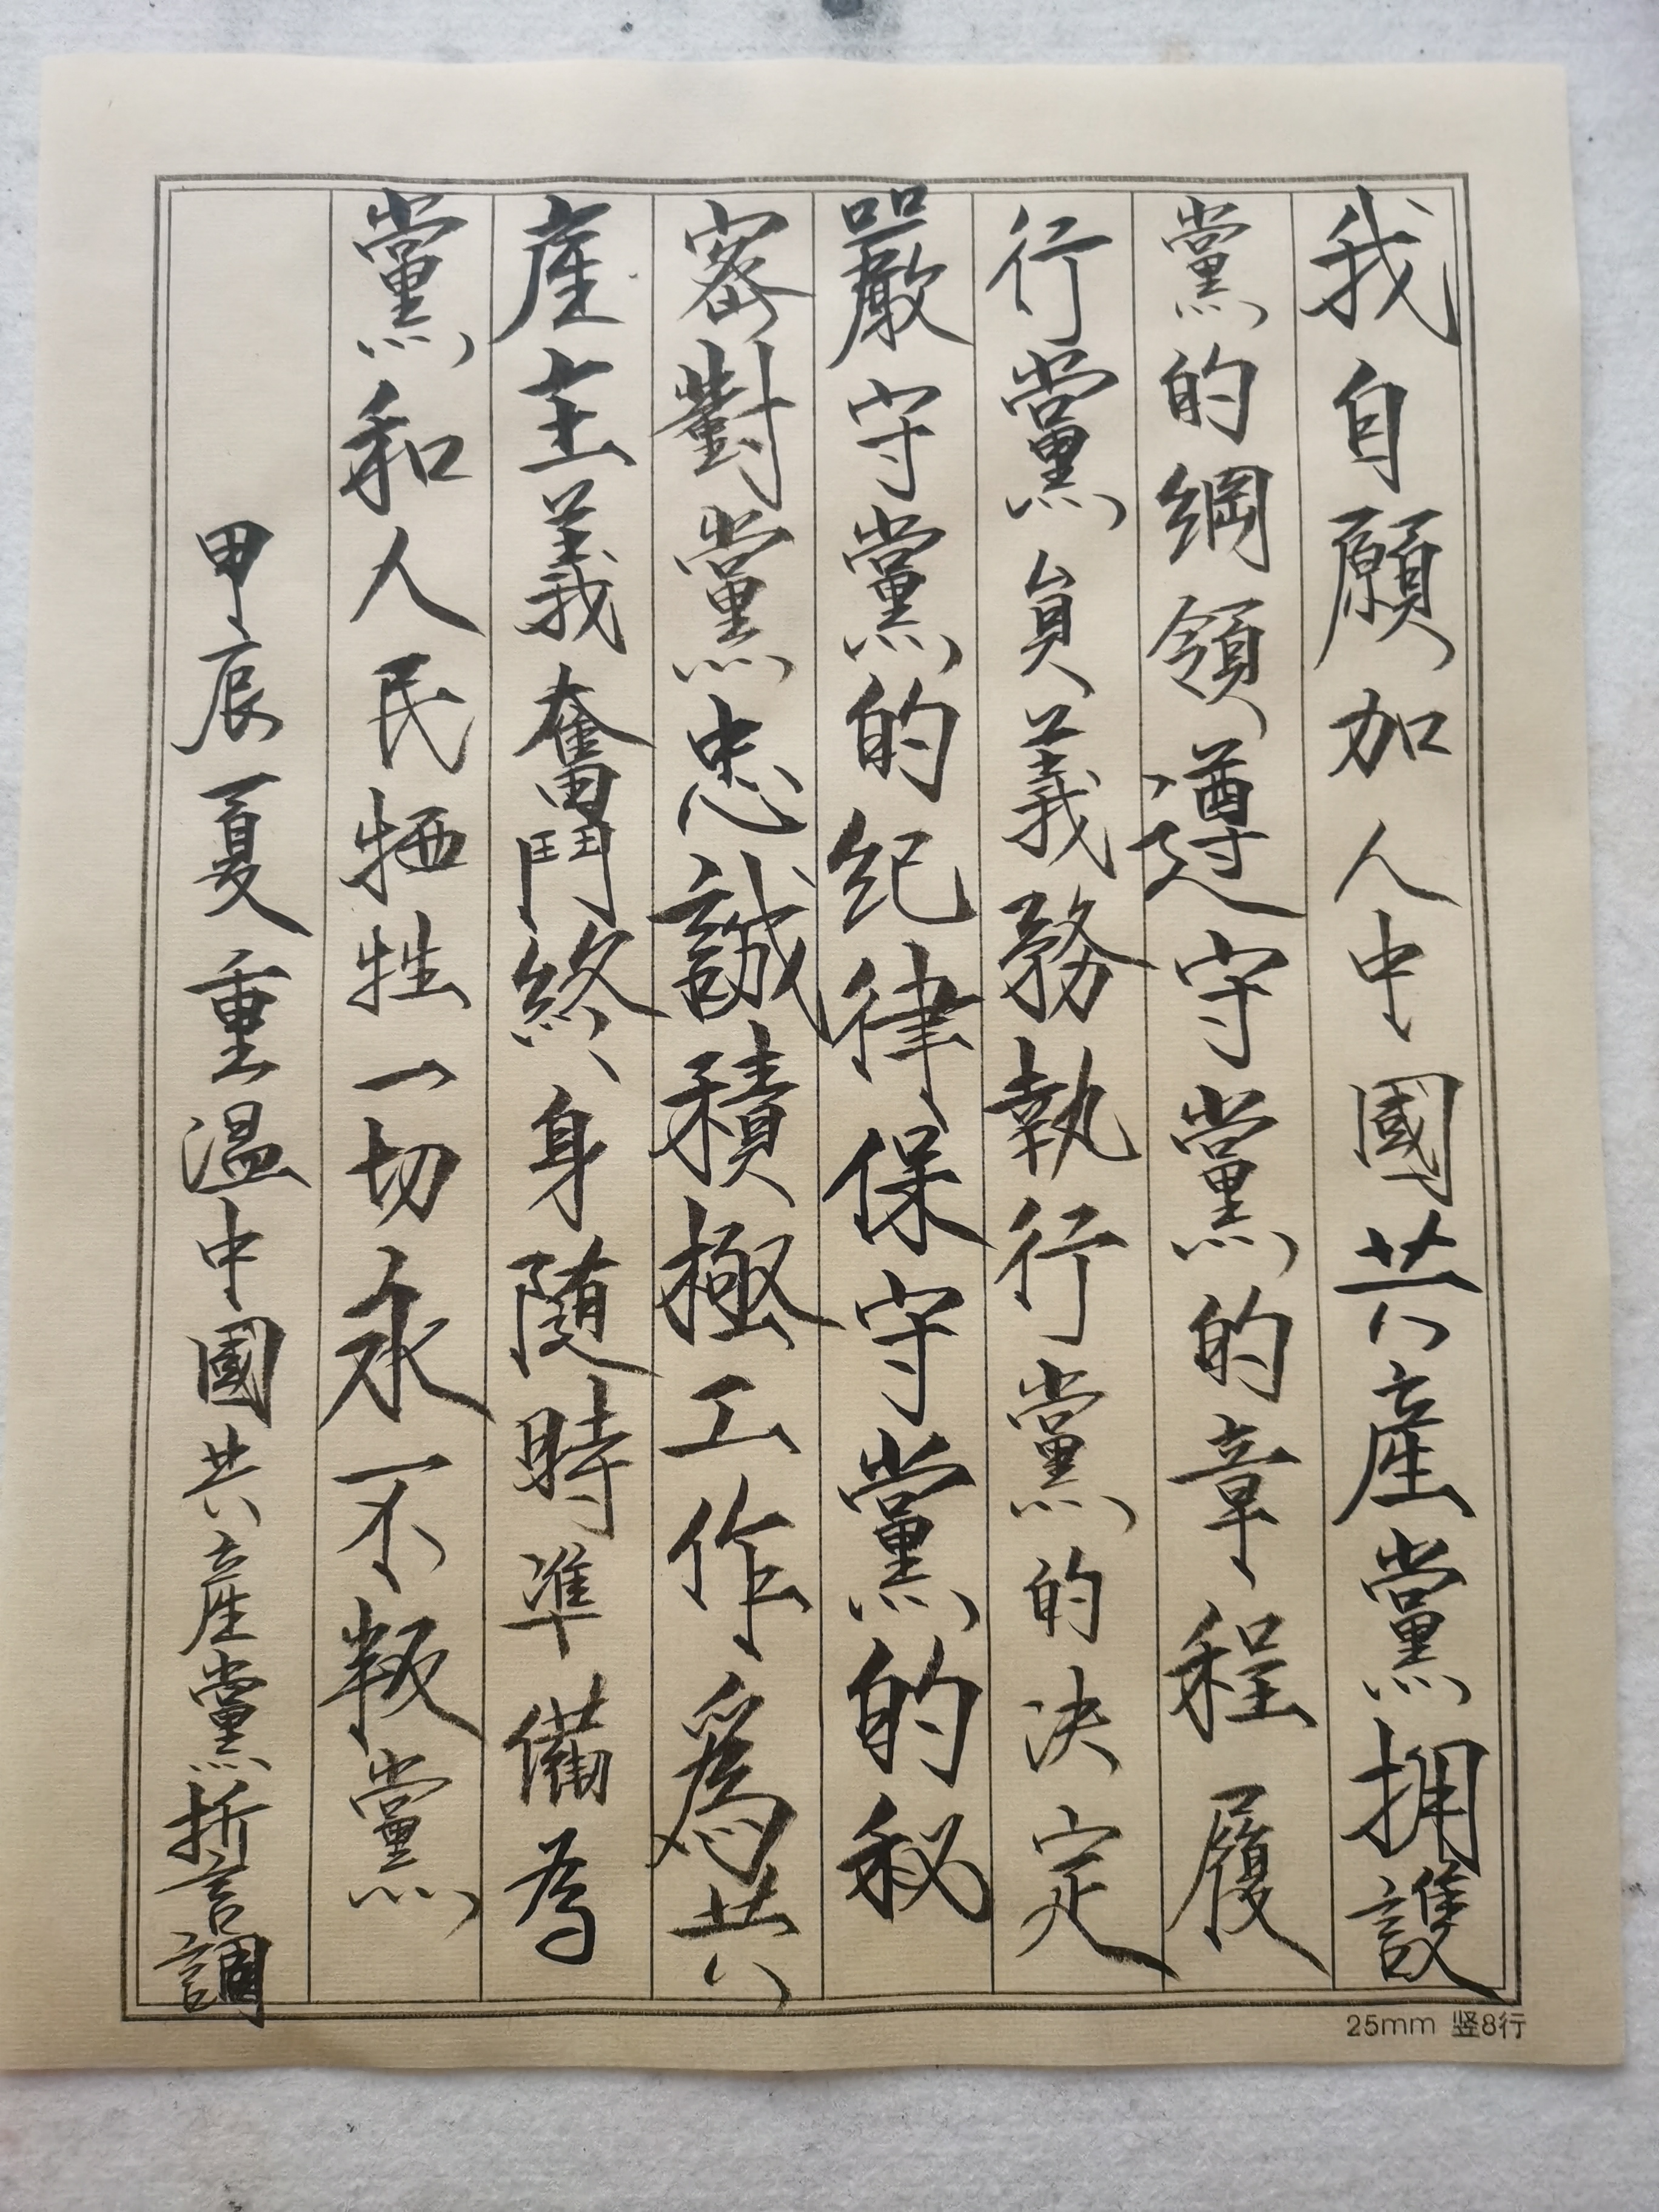 我自願加入中國共產黨擁護
黨的綱領遵守黨的章程履
行黨員義務執行黨的決定
嚴守黨的纪律保守黨的秘
密對黨忠誠積極工作爲共
產主義奮鬥終身随時準備為
黨和人民牺牲一切永不叛黨
甲辰夏重温中國共產黨誓詞
25mm 竖8行